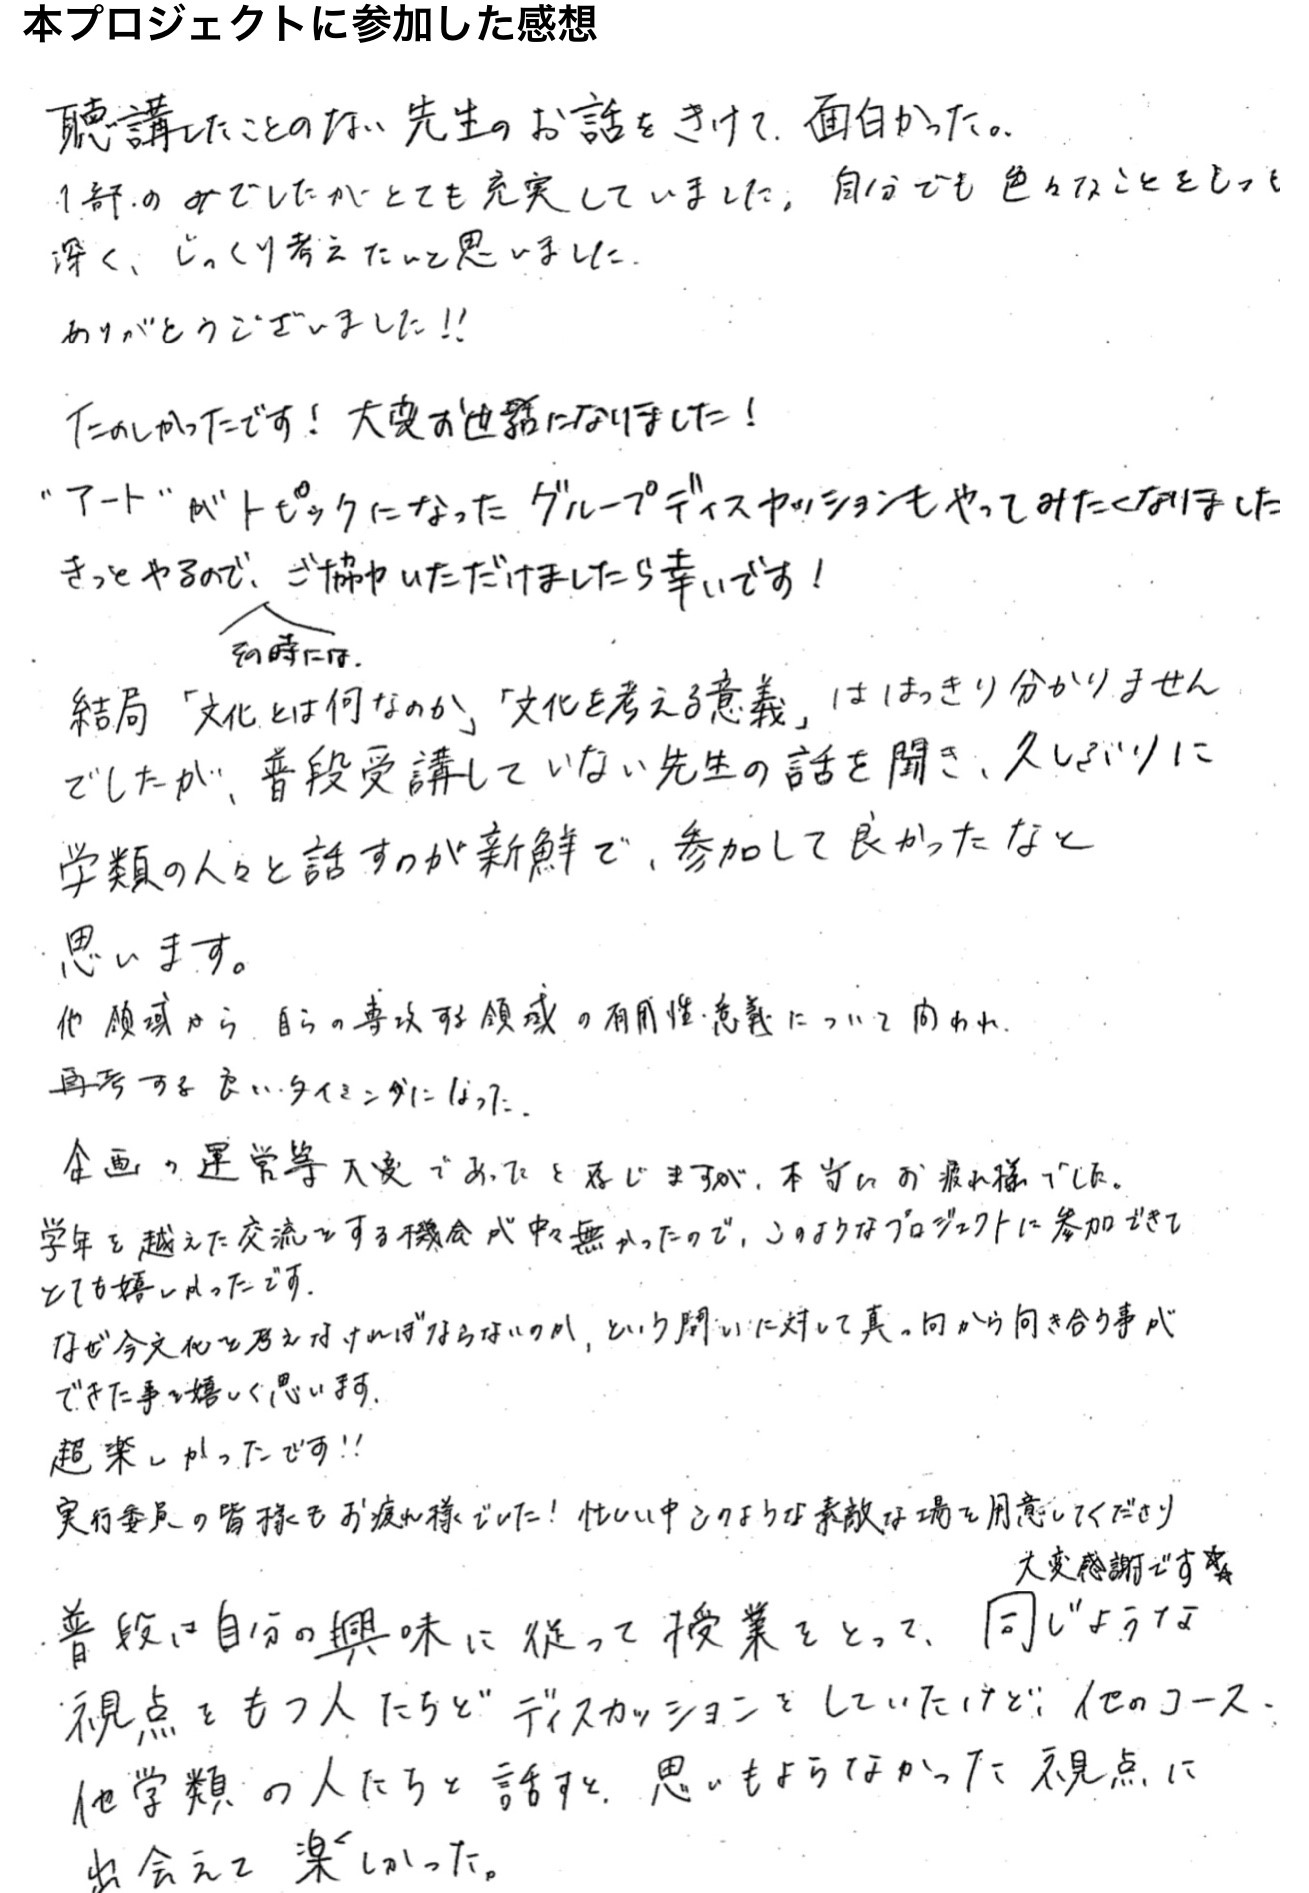 本プロジェクトに参加した感想
聴講したことのない先生のお話をきけて、面白かった。
1部のみでしたがとても充実していました。自分でも色々なことをもっと
深く、じっくり考えたいと思いました。
ありがとうございました!!
たのしかったです！大変お世話になりました！
"アート"がトピックになったグループディスカッションもやってみたくなりました
きっとやるので、ご協力いただけましたら幸いです！
その時には、
結局「文化とは何なのか」「文化を考える意義」ははっきり分かりません
でしたが、普段受講していない先生の話を聞き、久しぶりに
学類の人々と話すのが新鮮で、参加して良かったなと
思います。
他領域から自らの専攻する領域の有用性・意義について問われ、
再考する良いタイミングになった。
企画の運営等大変であったと存じますが、本当にお疲れ様でした。
学年を越えた交流をする機会が中々無かったので、このようなプロジェクトに参加できて
とても嬉しかったです。
なぜ今文化を考えなければならないのか、という問いに対して真っ向から向き合う事が
できた事を嬉しく思います。
超楽しかったです!!
実行委員の皆様もお疲れ様でした！忙しい中このような素敵な場を用意してくださり
大変感謝です☆☆
普段は自分の興味に従って授業をとって、同じような
視点をもつ人たちとディスカッションをしていたけど、他のコース、
他学類の人たちと話すと、思いもよらなかった視点に
出会えて楽しかった。